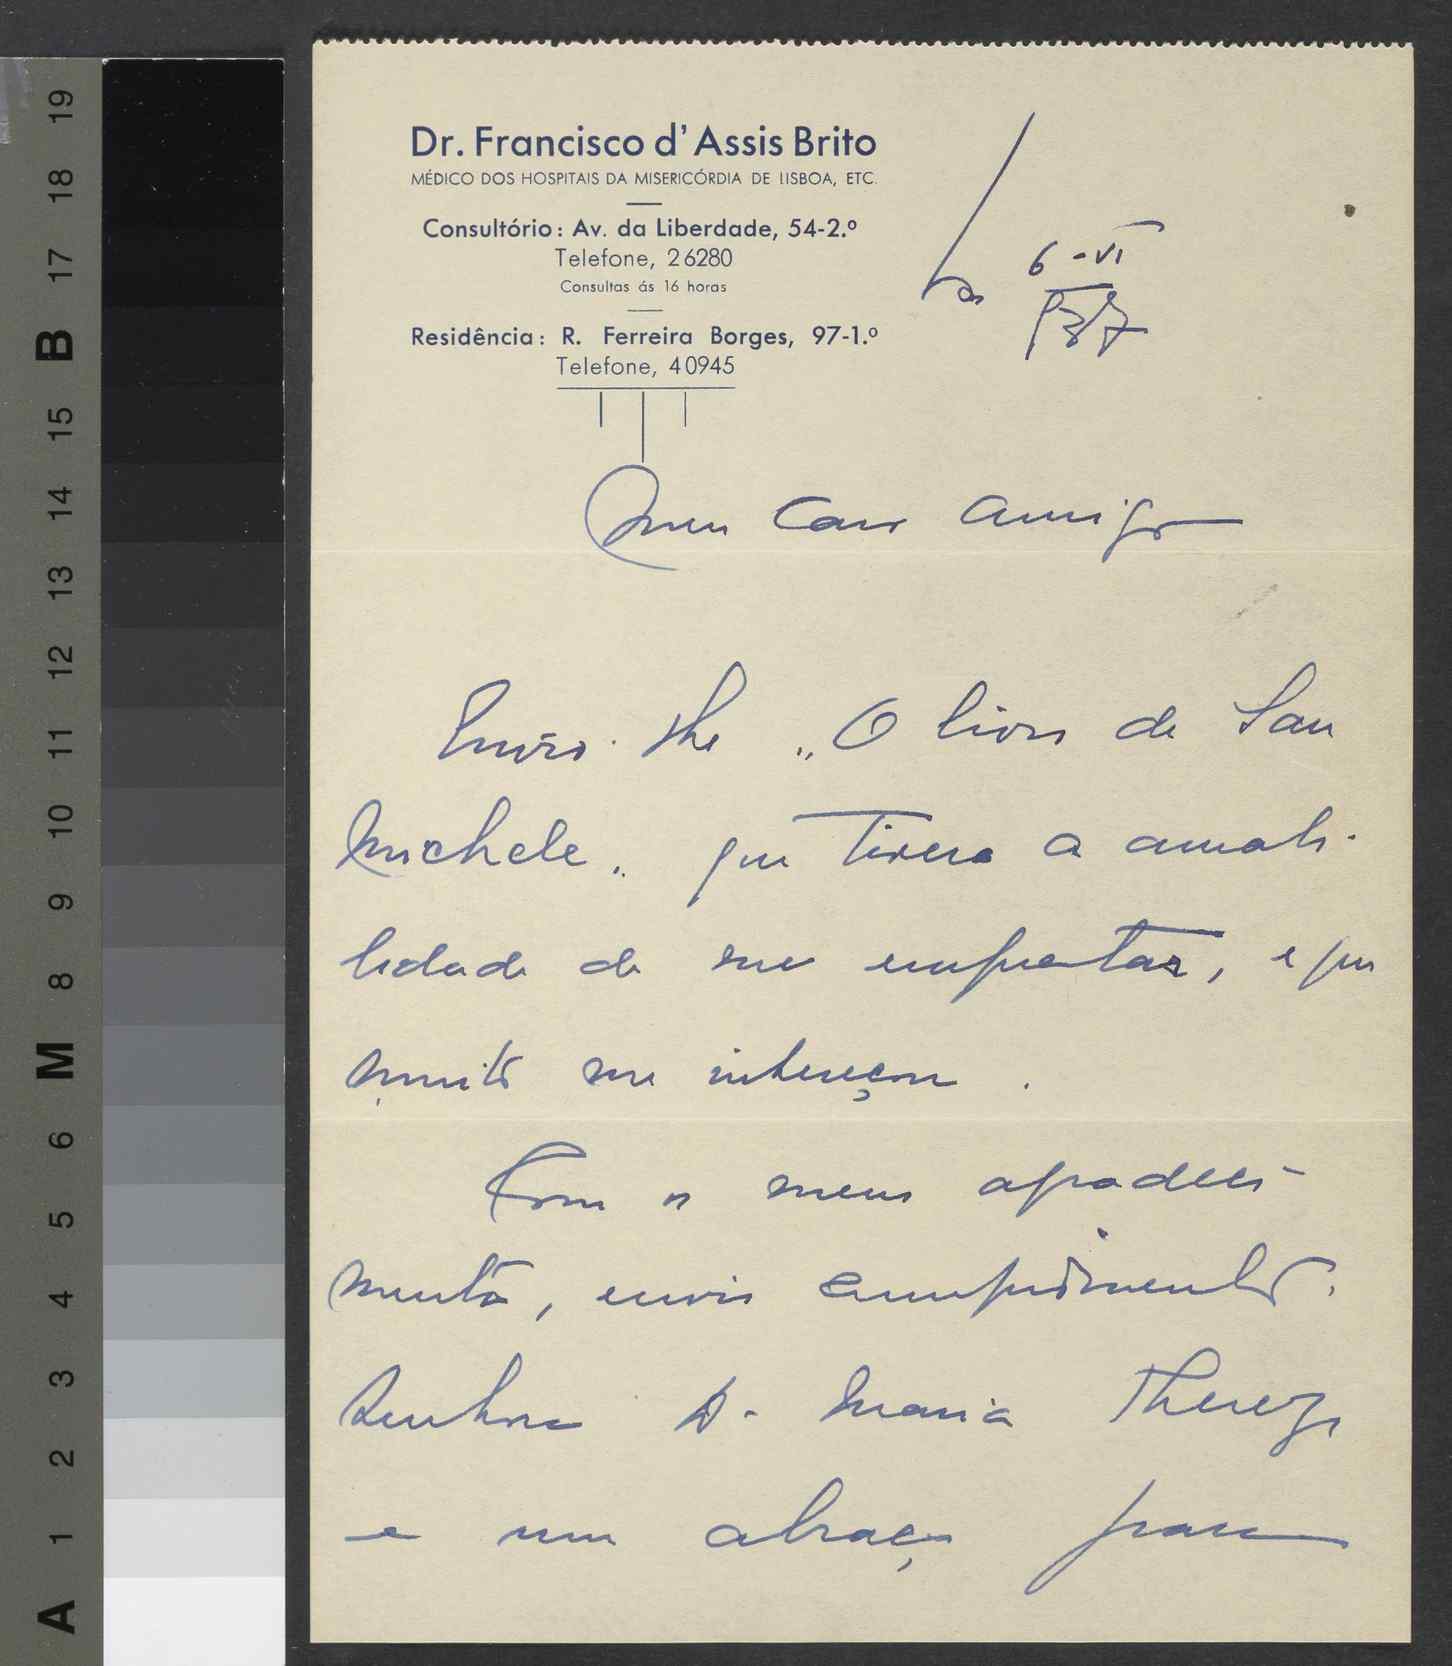 Dr. Francisco d'Assis Brito
MÉDICO DOS HOSPITAIS DA MISERICÓRDIA DE LISBOA, ETC.
Consultório: Av. da Liberdade, 54-2.º
Telefone, 26280
Consultas ás 16 horas
Residência: R. Ferreira Borges, 97-1.º
Telefone, 40945
6-VI
937
Meu Caro Amigo
Envio-lhe "O livro de San
Michele" que tivera a amabi-
lidade de me emprestar, e que
muito me interessou.
Com os meus agradeci-
mentos, envio cumprimentos
Senhora D. Maria Thereza
e um abraço para
A 1 2 3 4 5 6 M 8 9 10 11 12 13 14 15 B 17 18 19